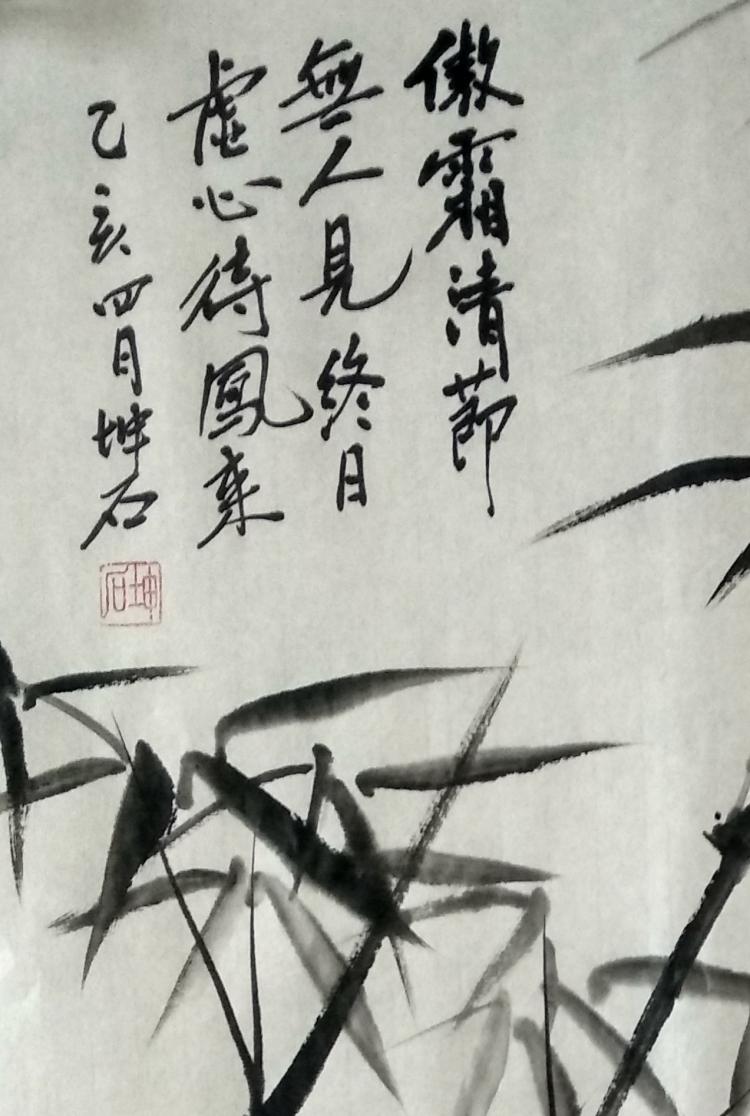 傲霜清節
無人見終日
虛心待鳳来
乙亥四月坤石
坤石